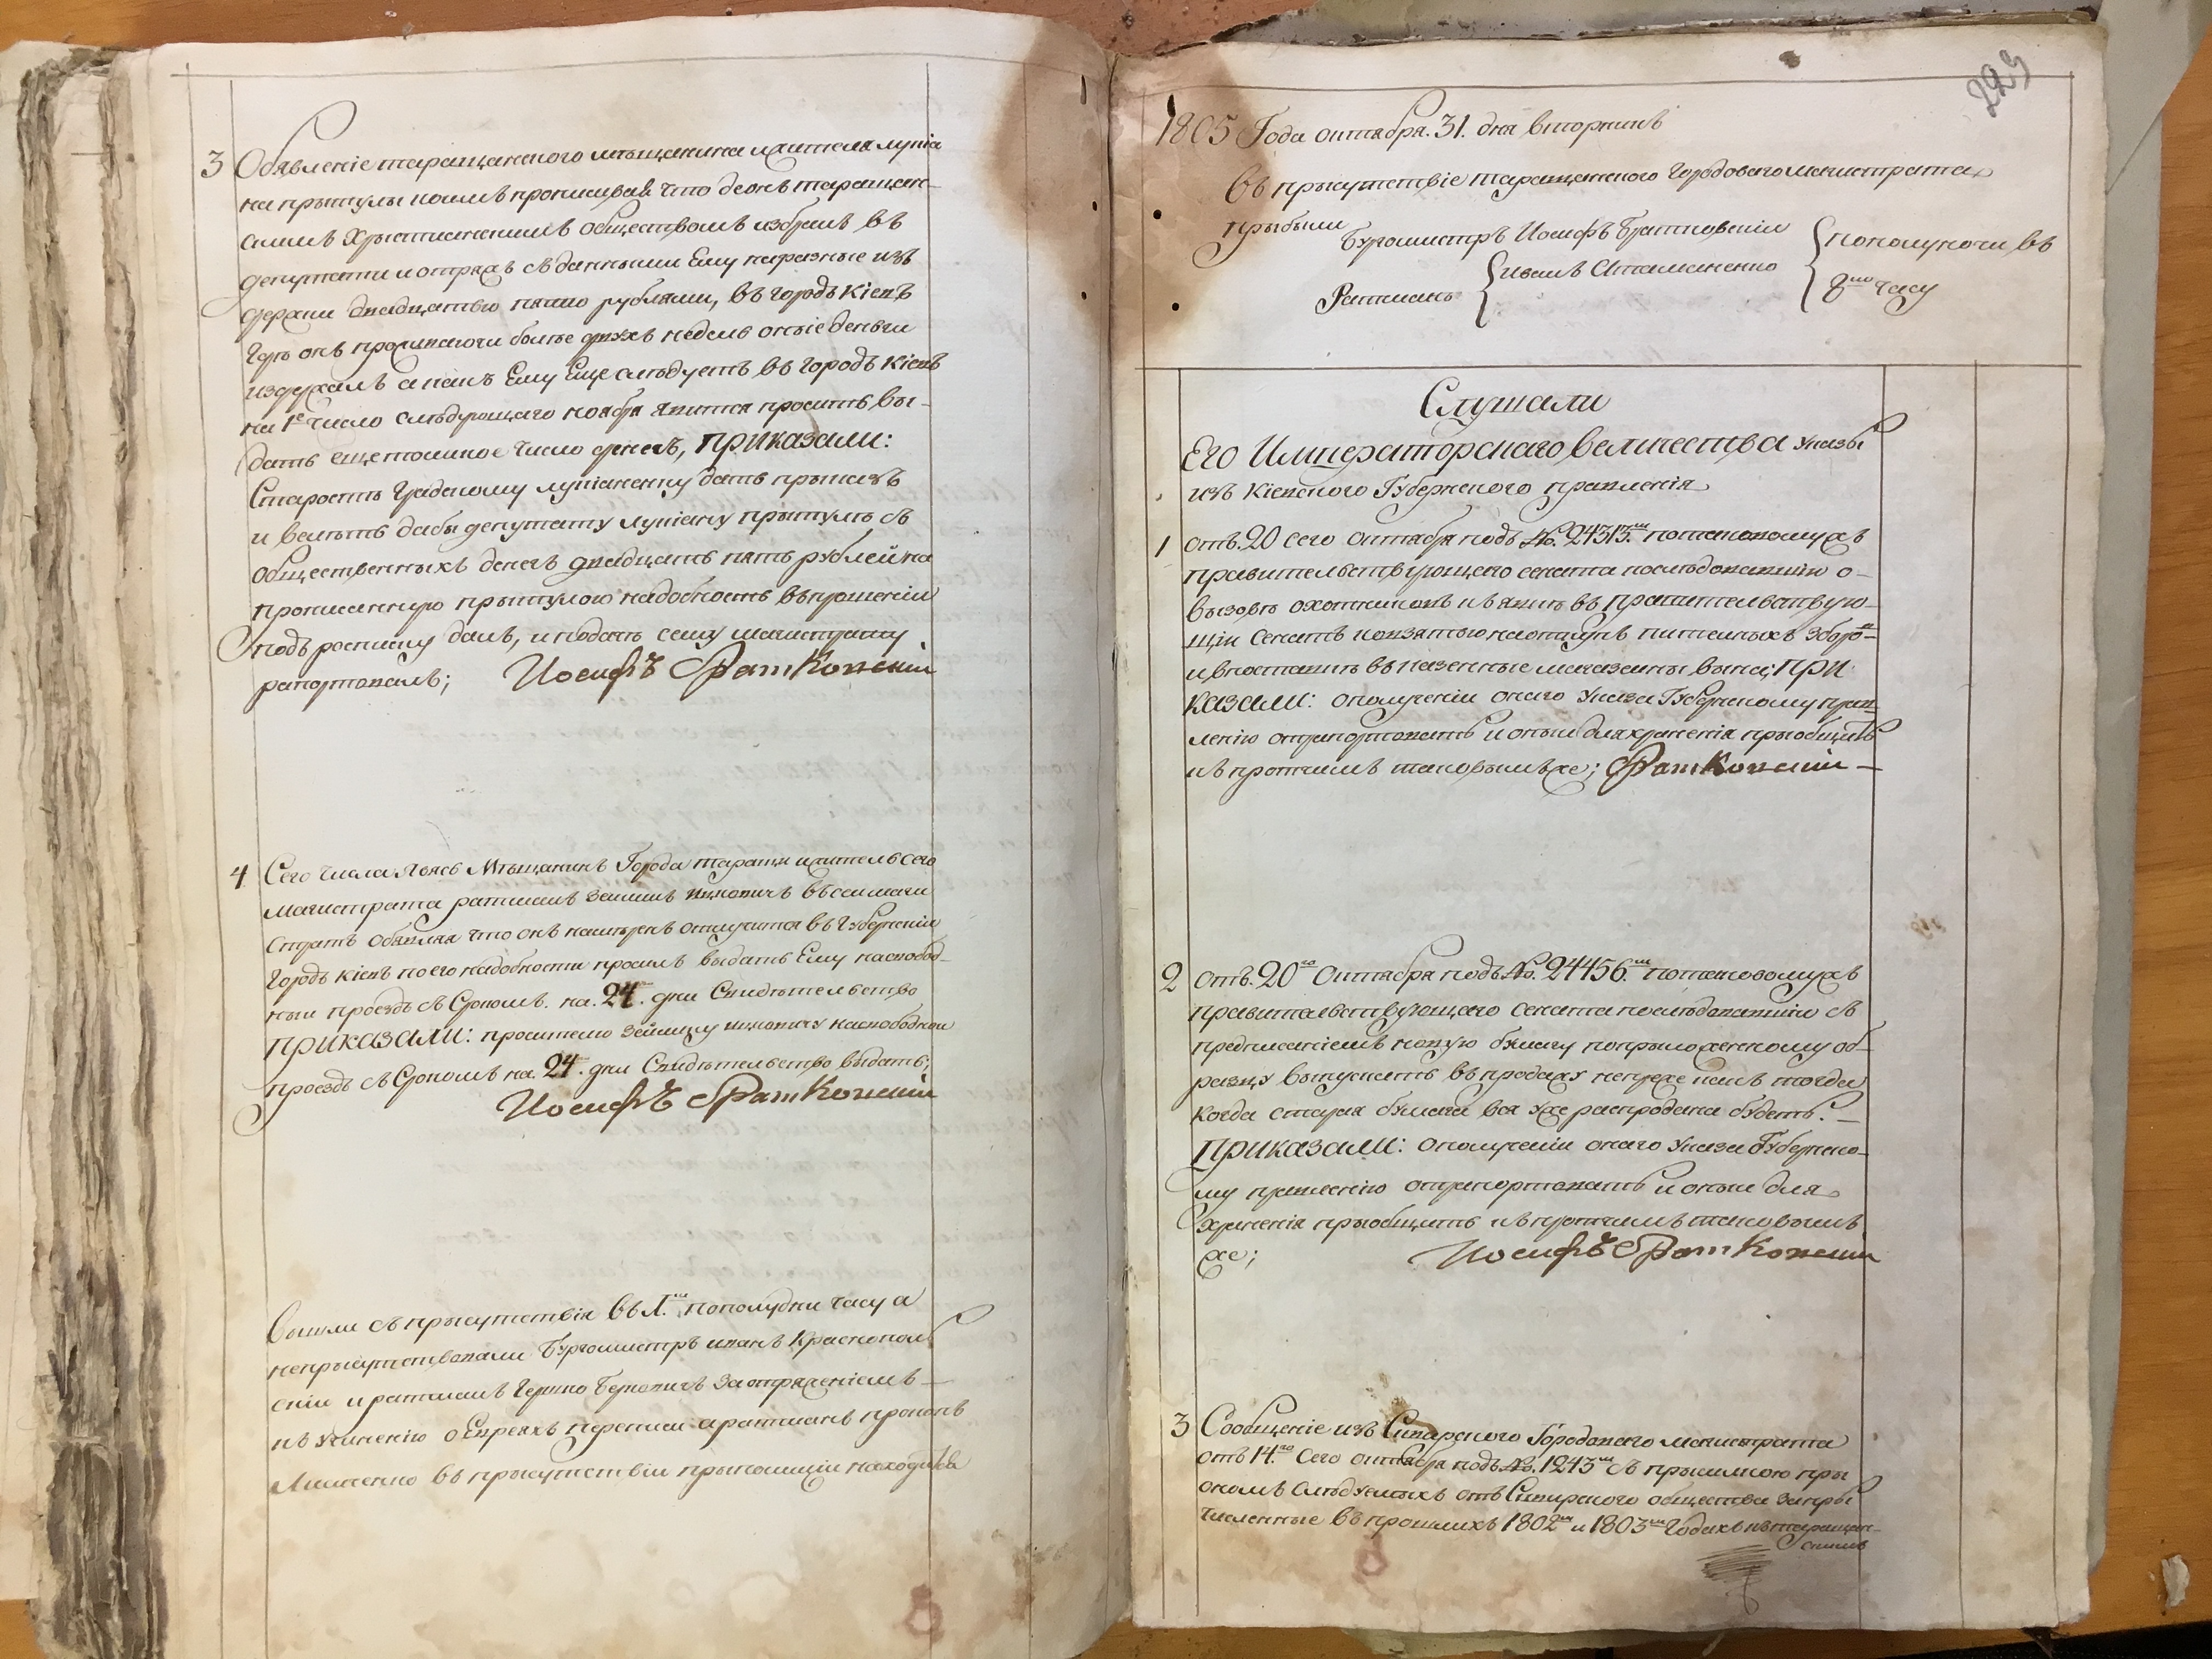 3 Обявленіе таращанского мѣщанина и жителя лукіа
на прытулы коимъ прописывая что де онъ таращан-
скимъ христианскимъ обществомъ избранъ въ
депутати и отряжъ съ данными Ему на разные из
держки двадцатью пятю рублями, въ городъ Кіевъ
Где онъ проживаючи более двухъ недель оныіе деньги
издержалъ а какъ Ему Еще слѣдуетъ въ городъ Кіевъ
на 1е число слѣдующего ноабря явится просить вы-
дать еще толикое число денегъ, приказали:
Старостѣ Градскому лукіаненку дать приказъ
и велѣть дабы депутату лукіану прытулѣ съ
общественныхъ денегъ двадцать пять рублей на
прописанную прытулою надобность въ прошеніи
подъ росписку далъ, и подать сему магистрату
рапортовалъ; Иосифъ Братковскій
4 Сего числа явясь Мѣщанинъ Города таращи и житель сего
магистрата ратманъ Зейликъ ицковичъ въ сей маги
стратъ обявляя что онъ намѣренъ отлучится въ Губернскій
Городъ Кіевъ по его надобности просилъ выдать Ему на свобод-
ный проездъ съ Срокомъ на 24. дни Свидѣтельство
приказали: просителю Зейлику ицковичу на свободной
проездъ съ Срокомъ на 24. дни Свидѣтельство выдать;
Иосифъ Братковскій
вышли съ прысутствія въ 1.ш пополудни часу а
неприсутствовали Бургомистръ иванъ Краснополь
скій и ратманъ Гершко Берковичъ за отряженіемъ
къ учиненію о Евреяхъ переписи а ратманъ прокопъ
Литвенко въ прысутствіи прытомщіи находился
229
1805 Года октабра. 31. дня вторникъ
въ прысутствіе таращанского Городового магистрата
прыбыли
Бургомистръ Иосифъ Братковскій
Ратманъ иванъ Атаманенко
пополуночи въ
8мъ часу
Слушали
Его Императорскаго величества указы
изъ Кіевского Губернского правленія
1 отъ. 20 сего октабра подъ №. 24313.ш по таковому жъ
правительствующего сената последовавшій о-
вызовѣ охотниковъ къ явкѣ въ правительствую-
щій Сенатъ ко взятью на откупъ питейныхъ зборо-
и в поставкѣ въ казенные магазейны вына; при
казали: о полученіи оного указа Губернскому прав-
ленію отрапортовать и оный для храненія прыобщить
къ протчимъ таковымъ же; Братковскій
2 отъ. 20го Октабра подъ №. 24456.ш по таковому жъ
правительствующего сената последовавшій съ
предписаніемъ новую бумагу по прыложенному об-
разцу выпускать въ продажу не преже какъ тогда
когда старая бумага вся уже распродана будетъ.
приказали: о полученіи оного указа Губернско-
му правленію отрапортовать и оный для
храненія прыобщить къ протчимъ таковымъ
же; Иосифъ Братковскій
3 Сообщеніе изъ Сквирского Городового магистрата
отъ 14.го сего октабра подъ №. 1243ш съ прысылкою пры
ономъ слѣдуемыхъ отъ Сквирского общества за пры
численные въ прошлихъ 1802ш и 1803ш Годахъ къ таращан-
скимъ